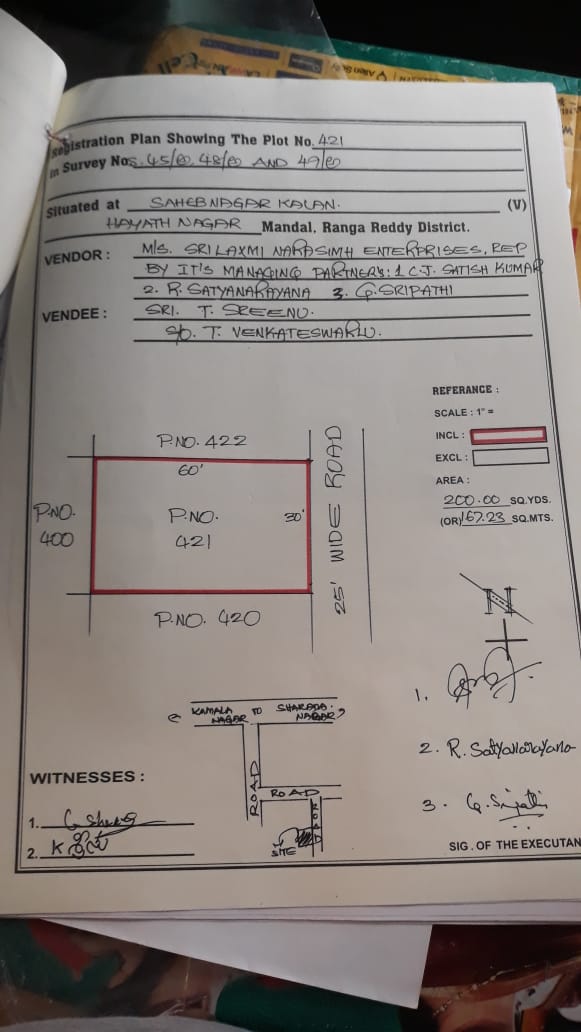 Registration Plan Showing The Plot No. 421
in Survey Nos. 45/e, 48/e AND 49/e
Situated at SAHEBNAGAR KALAN. (V)
HAYATH NAGAR Mandal, Ranga Reddy District.
VENDOR : M/S. SRI LAXMI NARASIMH ENTERPRISES, REP
BY IT'S MANAGING PARTNERS: 1 C.J. SATISH KUMAR
2. R. SATYANARAYANA 3. G. SRIPATHI
VENDEE : SRI. T. SREENU.
S/o. T. VENKATESWARLU.
REFERANCE :
SCALE : 1" =
INCL :
EXCL :
AREA :
200.00 SQ.YDS.
(OR) 167.23 SQ.MTS.
P.NO. 422
60'
P.NO. 400
P.NO. 421
30'
25' WIDE ROAD
P.NO. 420
N
KAMALA NAGAR TO SHARADA NAGAR
ROAD
ROAD
ROAD
SITE
1.
2. R. Satyanarayana
3. G. Sripathi
SIG. OF THE EXECUTAN
WITNESSES :
1.
2. K